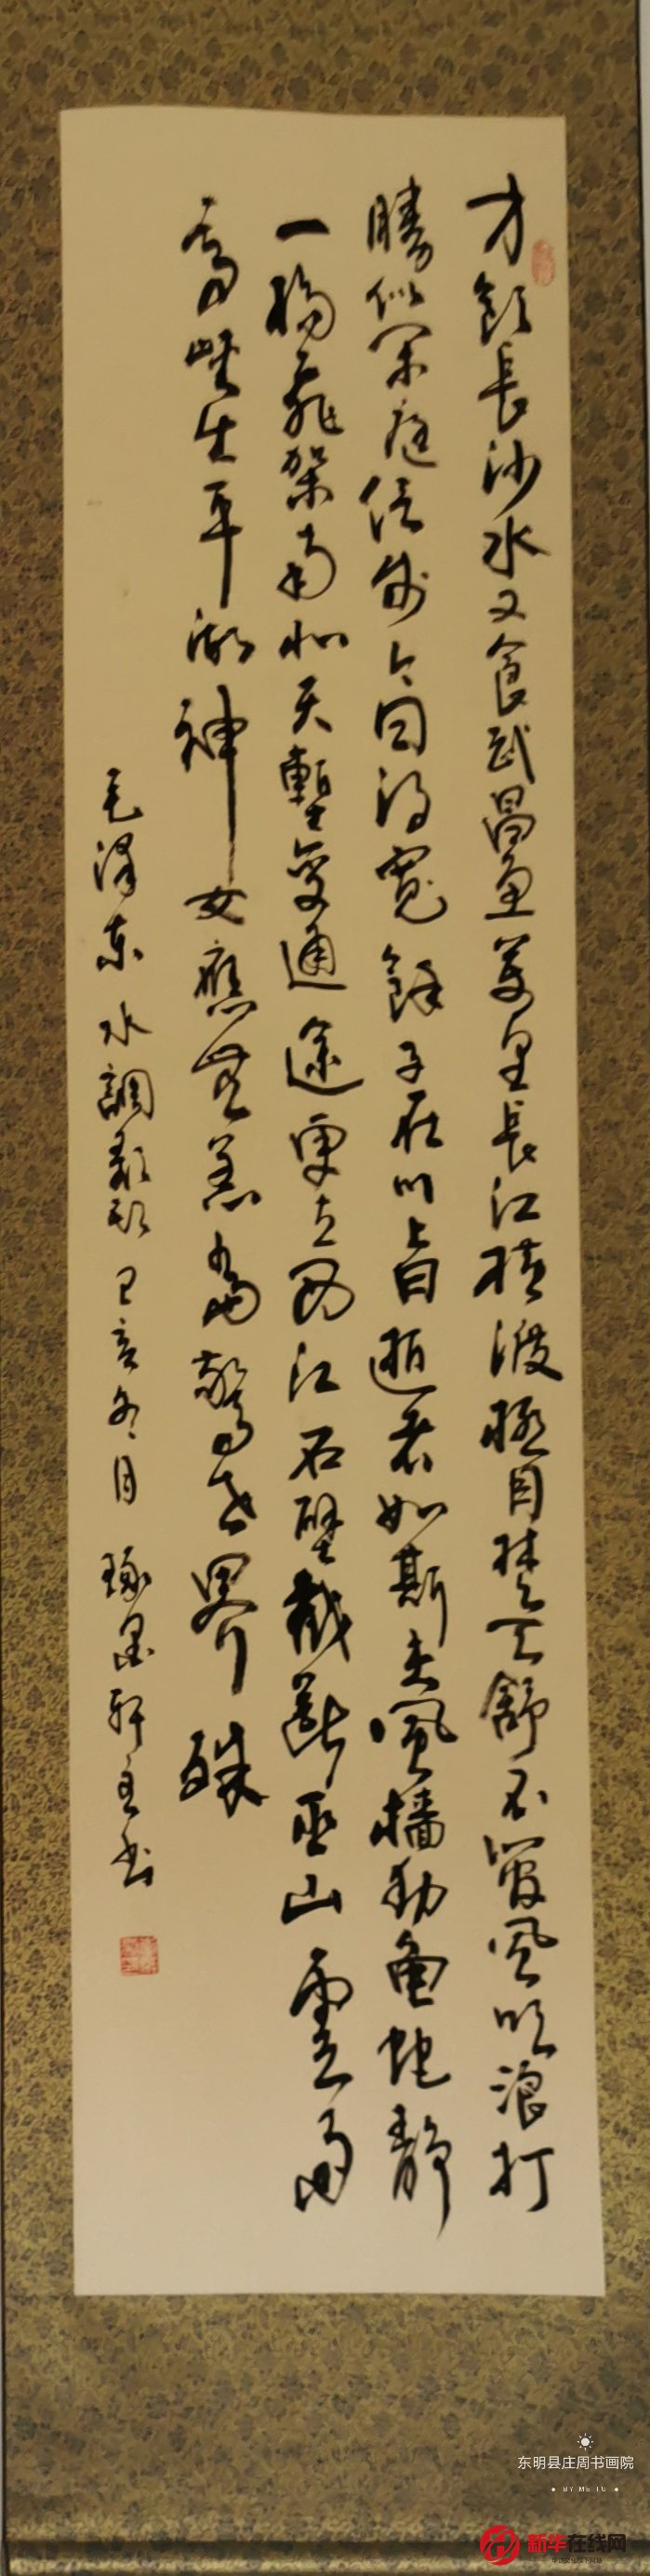 才飲長沙水又食武昌魚萬里長江橫渡極目楚天舒不管風吹浪打
勝似閑庭信步今日得寬餘子在川上曰逝者如斯夫風檣動龜蛇靜
一橋飛架南北天塹變通途更立西江石壁截斷巫山雲雨
高峽出平湖神女應無恙當驚世界殊
毛泽东 水調歌頭 己亥冬月 琢墨轩主书
东明县庄周书画院
新华在线网